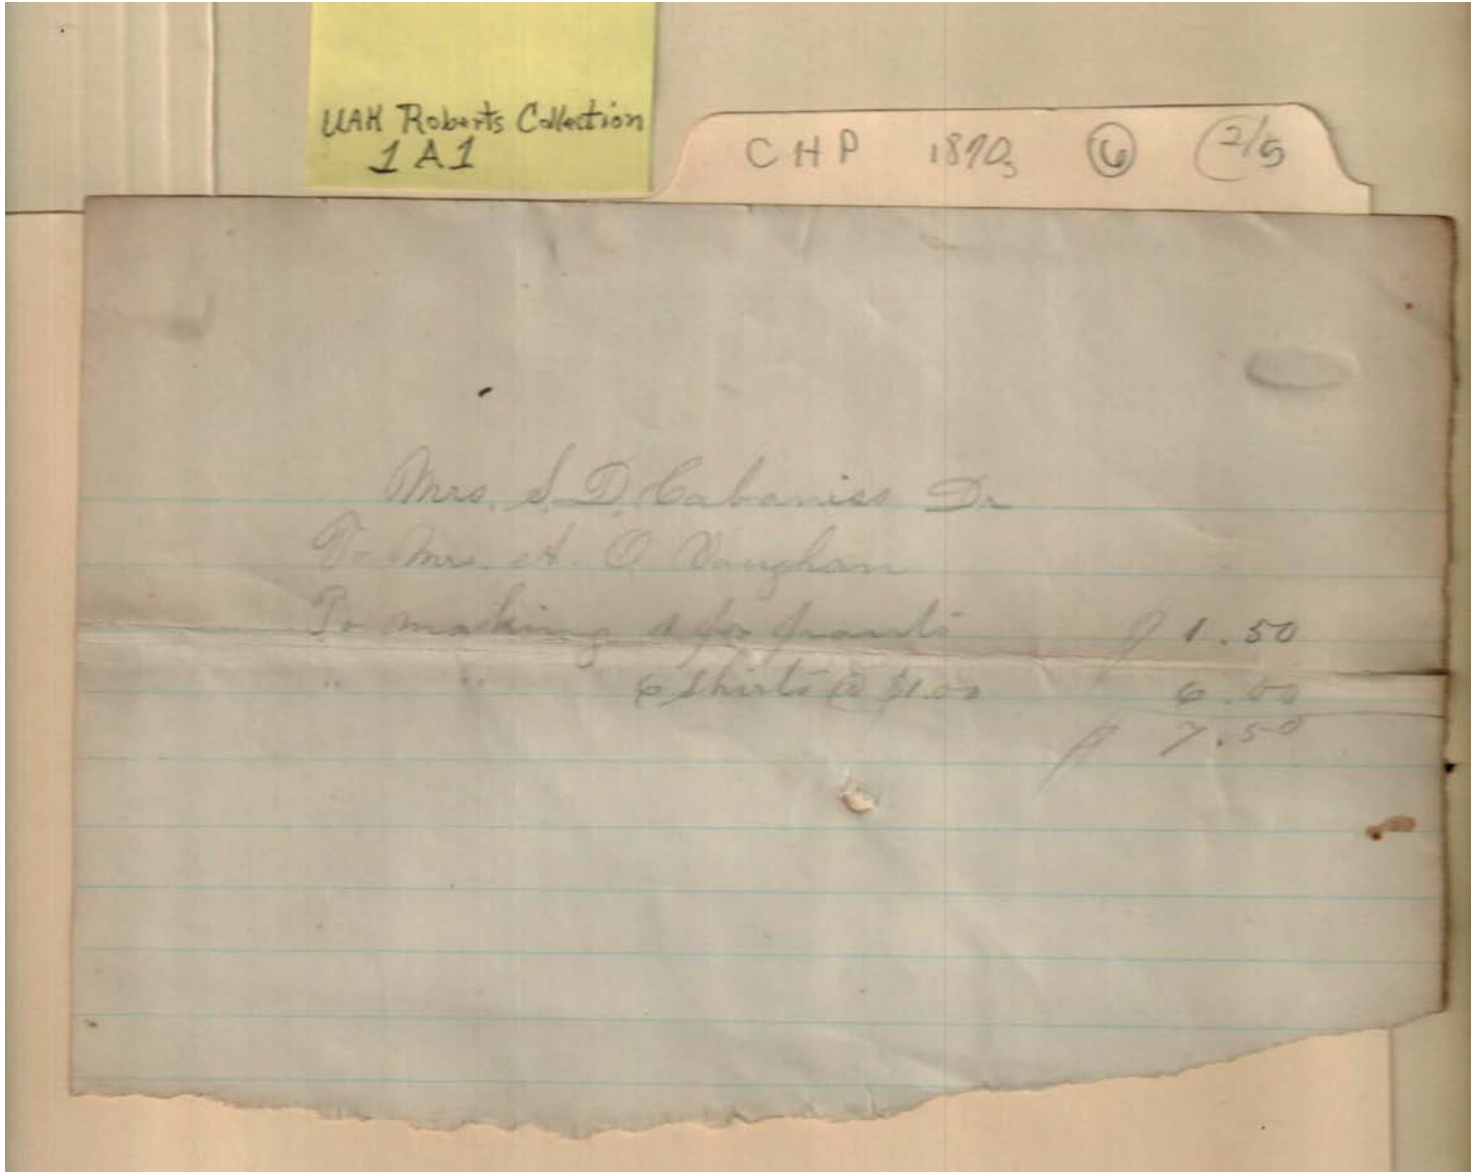 UAH Roberts Collection
1A1
CHP 1870s 6 2/5
Mrs. S. D. Cabaniss Dr
To Mrs. A. O. Vaughan
To making 1 pr pants $ 1.50
" " 6 Shirts @ $1.00 6.00
$ 7.50